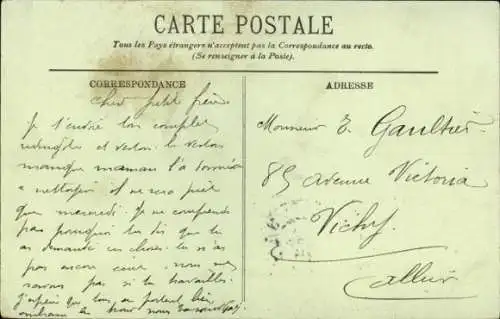 CARTE POSTALE
Tous les Pays étrangers n'acceptent pas la Correspondance au recto.
(Se renseigner à la Poste).
CORRESPONDANCE
cher petit frère
Je t'envoie ton complet
et veston. le veston
manque maman l'a
a nettoyer il ne sera prêt
que mercredi. Je ne comprends
pas pourquoi tu dis que tu
as demandé tu n'as
pas encore nous ne
savons pas si tu travailles.
J'espère que tous se portent bien
ADRESSE
Monsieur E. Gaultier
85 avenue Victoria
Vichy
allier